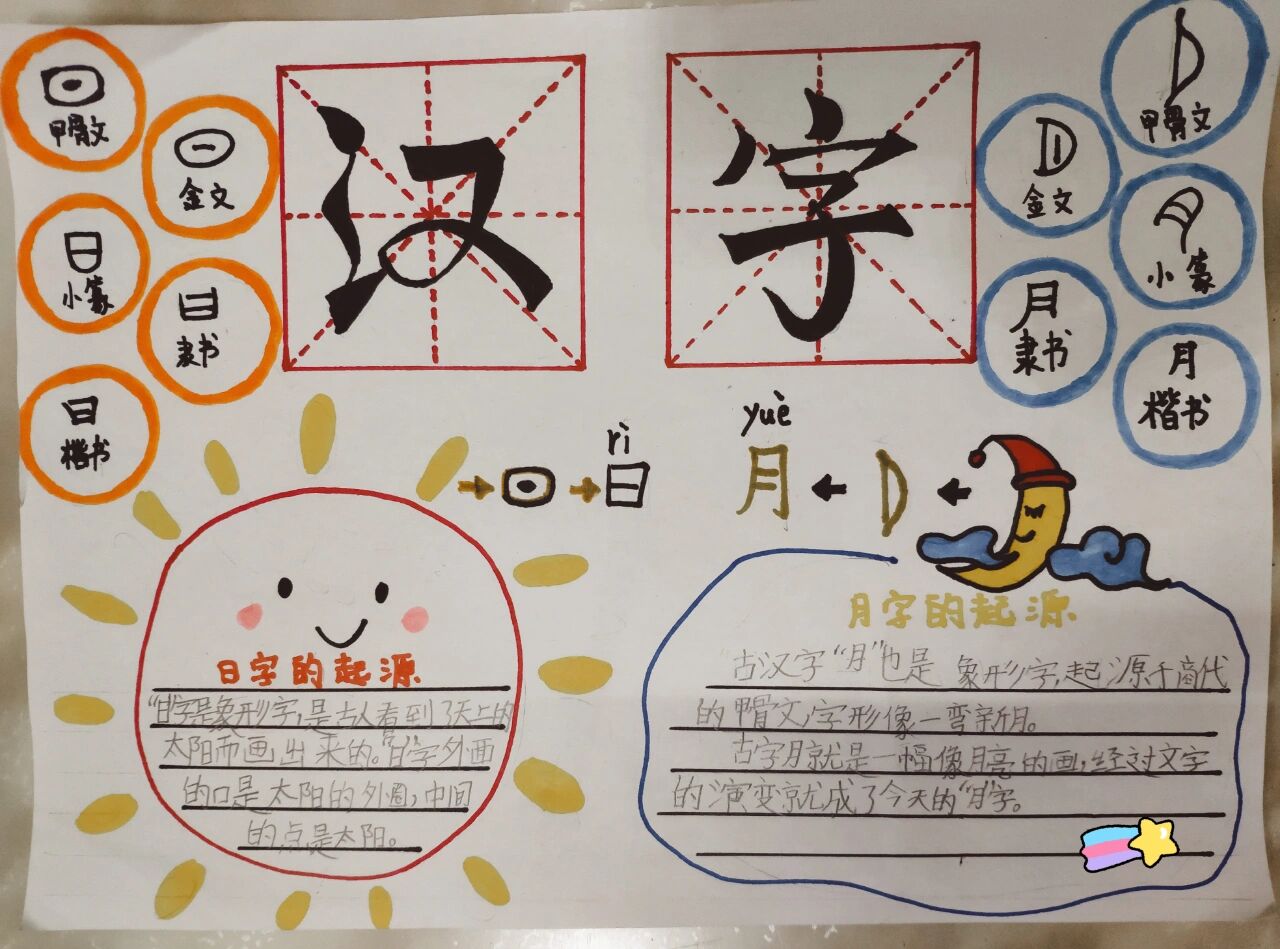 日
甲骨文
日
金文
日
小篆
日
隶书
日
楷书
汉字
甲骨文
金文
小篆
月
隶书
月
楷书
rì
日
yuè
月
日字的起源
“日”字是象形字,是古人看到了天上的
太阳而画出来的。“日”字外画
的口是太阳的外圈,中间
的点是太阳。
月字的起源
古汉字“月”也是象形字,起源于商代
的甲骨文,字形像一弯新月。
古字月就是一幅像月亮的画,经过文字
的演变就成了今天的“月”字。